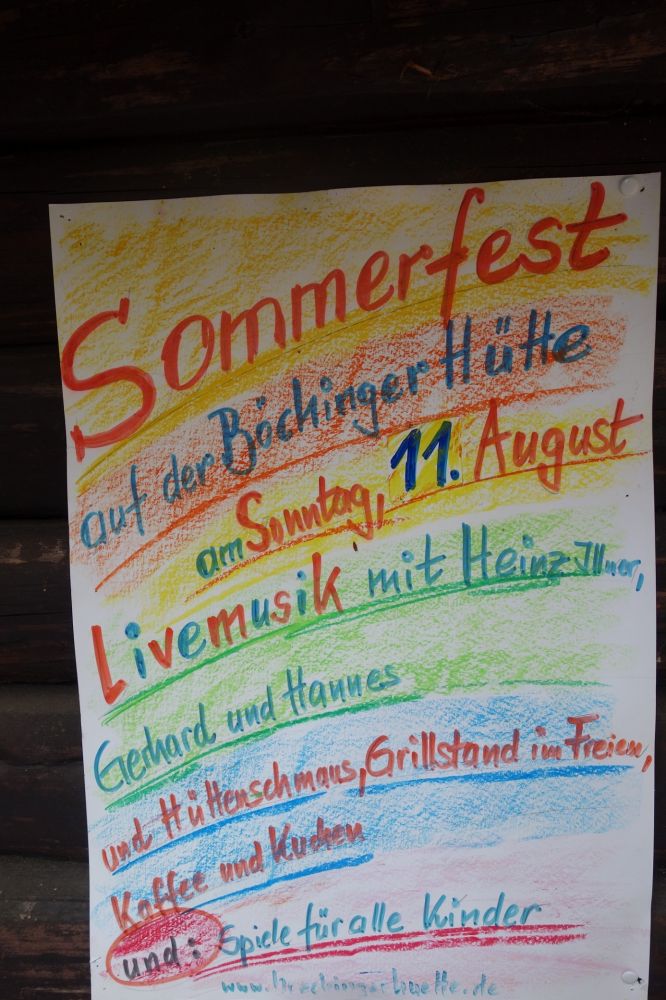 Sommerfest
auf der Böchinger Hütte
am Sonntag, 11. August
Livemusik mit Heinz Illner,
Gerhard und Hannes
und Hüttenschmaus, Grillstand im Freien,
Kaffee und Kuchen
und: Spiele für alle Kinder
www.boechingerhuette.de